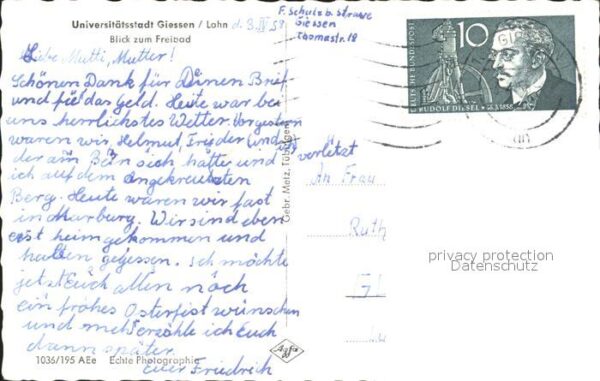 Universitätsstadt Giessen / Lahn d. 3. IV 58
Blick zum Freibad
F. Schulz b. Strauc
Giessen
Thomastr. 18
Liebe Mutti, Mutter!
Schönen Dank für Deinen Brief
und für das Geld. Heute war bei
uns herrlichstes Wetter. Vorgestern
waren wir, Helmut, Frieder (und ist verletzt
der am Bein sich hatte und
ich auf dem angekreuzten
Berg. Heute waren wir fast
in Marburg. Wir sind eben
erst heimgekommen und
hatten gegessen. Ich möchte
jetzt Euch allen noch
ein frohes Osterfest wünschen
und mehr erzähle ich Euch
dann später.
Euer Friedrich
1036/195 AEe Echte Photographie
Agfa
Gebr. Metz, Tübingen
DEUTSCHE BUNDESPOST
10
RUDOLF DIESEL · 18.3.1858
An Frau
Ruth
privacy protection
Datenschutz